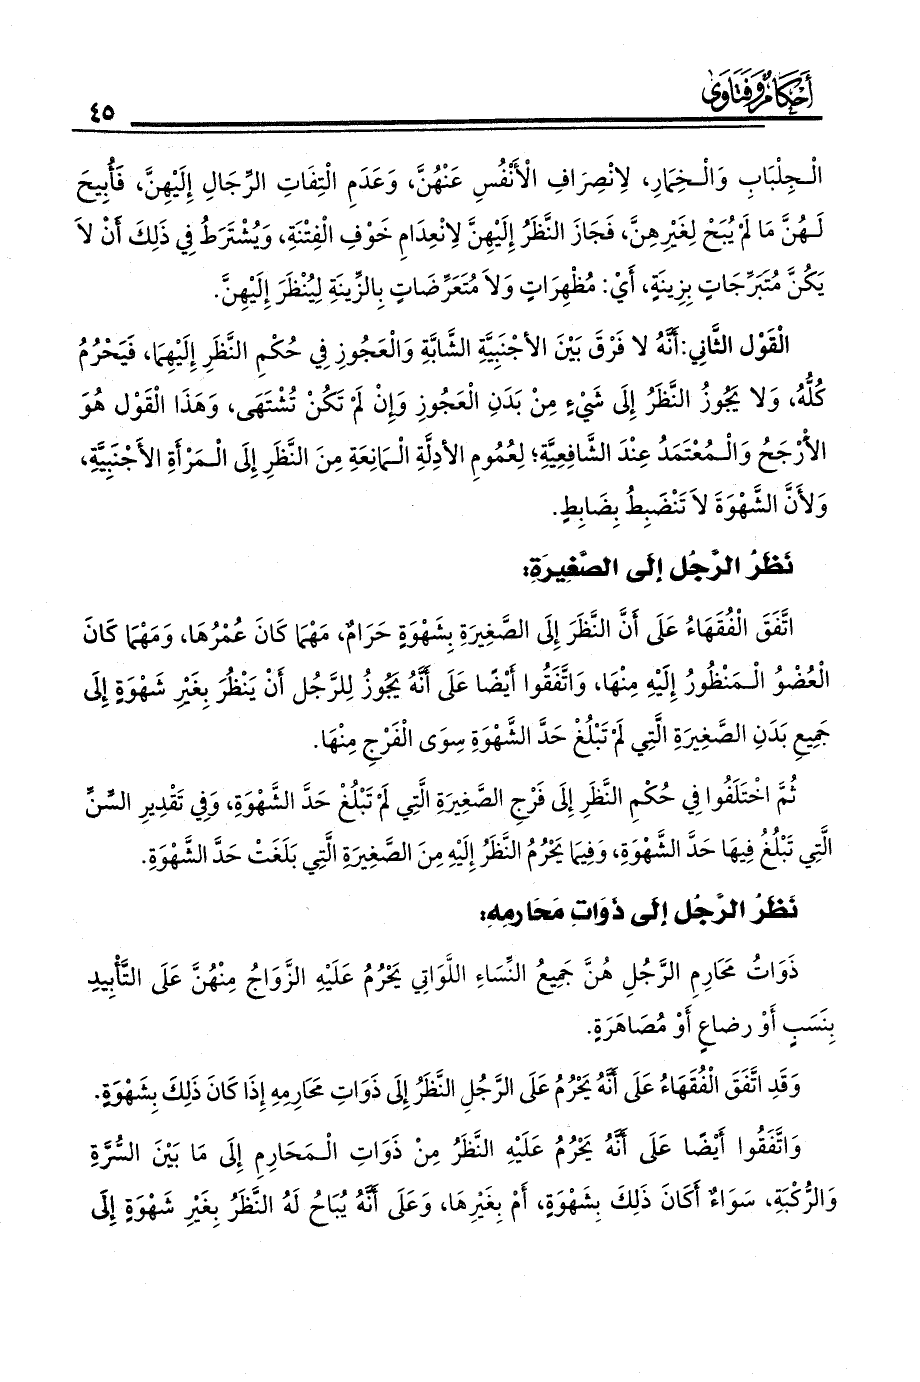 أَحْكَامٌ وَفَتَاوَى
٤٥
الْجِلْبَابِ وَالْخِمَارِ، لِانْصِرَافِ الْأَنْفُسِ عَنْهُنَّ، وَعَدَمِ الْتِفَاتِ الرِّجَالِ إِلَيْهِنَّ، فَأُبِيحَ
لَهُنَّ مَا لَمْ يُبَحْ لِغَيْرِهِنَّ، فَجَازَ النَّظَرُ إِلَيْهِنَّ لِانْعِدَامِ خَوْفِ الْفِتْنَةِ، وَيُشْتَرَطُ فِي ذَلِكَ أَنْ لاَ
يَكُنَّ مُتَبَرِّجَاتٍ بِزِينَةٍ، أَيْ: مُظْهِرَاتٍ وَلاَ مُتَعَرِّضَاتٍ بِالزِّينَةِ لِيُنْظَرَ إِلَيْهِنَّ.
الْقَوْل الثَّانِي: أَنَّهُ لا فَرْقَ بَيْنَ الأجْنَبِيَّةِ الشَّابَّةِ وَالْعَجُوزِ فِي حُكْمِ النَّظَرِ إِلَيْهِمَا، فَيَحْرُمُ
كُلُّهُ، وَلا يَجُوزُ النَّظَرُ إِلَى شَيْءٍ مِنْ بَدَنِ الْعَجُوزِ وَإِنْ لَمْ تَكُنْ تُشْتَهَى، وَهَذَا الْقَوْل هُوَ
الأرْجَحُ وَالْمُعْتَمَدُ عِنْدَ الشَّافِعِيَّةِ؛ لِعُمُومِ الأدِلَّةِ الْمَانِعَةِ مِنَ النَّظَرِ إِلَى الْمَرْأَةِ الأجْنَبِيَّةِ،
وَلأَنَّ الشَّهْوَةَ لاَ تَنْضَبِطُ بِضَابِطٍ.
نَظَرُ الرَّجُل إِلَى الصَّغِيرَةِ:
اتَّفَقَ الْفُقَهَاءُ عَلَى أَنَّ النَّظَرَ إِلَى الصَّغِيرَةِ بِشَهْوَةٍ حَرَامٌ، مَهْمَا كَانَ عُمْرُهَا، وَمَهْمَا كَانَ
الْعُضْوُ الْمَنْظُورُ إِلَيْهِ مِنْهَا، وَاتَّفَقُوا أَيْضًا عَلَى أَنَّهُ يَجُوزُ لِلرَّجُل أَنْ يَنْظُرَ بِغَيْرِ شَهْوَةٍ إِلَى
جَمِيعِ بَدَنِ الصَّغِيرَةِ الَّتِي لَمْ تَبْلُغْ حَدَّ الشَّهْوَةِ سِوَى الْفَرْجِ مِنْهَا.
ثُمَّ اخْتَلَفُوا فِي حُكْمِ النَّظَرِ إِلَى فَرْجِ الصَّغِيرَةِ الَّتِي لَمْ تَبْلُغْ حَدَّ الشَّهْوَةِ، وَفِي تَقْدِيرِ السِّنِّ
الَّتِي تَبْلُغُ فِيهَا حَدَّ الشَّهْوَةِ، وَفِيمَا يَحْرُمُ النَّظَرُ إِلَيْهِ مِنَ الصَّغِيرَةِ الَّتِي بَلَغَتْ حَدَّ الشَّهْوَةِ.
نَظَرُ الرَّجُل إِلَى ذَوَاتِ مَحَارِمِهِ:
ذَوَاتُ مَحَارِمِ الرَّجُلِ هُنَّ جَمِيعُ النِّسَاءِ اللَّوَاتِي يَحْرُمُ عَلَيْهِ الزَّوَاجُ مِنْهُنَّ عَلَى التَّأْبِيدِ
بِنَسَبٍ أَوْ رضاعٍ أَوْ مُصَاهَرَةٍ.
وَقَدِ اتَّفَقَ الْفُقَهَاءُ عَلَى أَنَّهُ يَحْرُمُ عَلَى الرَّجُلِ النَّظَرُ إِلَى ذَوَاتِ مَحَارِمِهِ إِذَا كَانَ ذَلِكَ بِشَهْوَةٍ.
وَاتَّفَقُوا أَيْضًا عَلَى أَنَّهُ يَحْرُمُ عَلَيْهِ النَّظَرُ مِنْ ذَوَاتِ الْمَحَارِمِ إِلَى مَا بَيْنَ السُّرَّةِ
وَالرُّكْبَةِ، سَوَاءٌ أَكَانَ ذَلِكَ بِشَهْوَةٍ، أَمْ بِغَيْرِهَا، وَعَلَى أَنَّهُ يُبَاحُ لَهُ النَّظَرُ بِغَيْرِ شَهْوَةٍ إِلَى